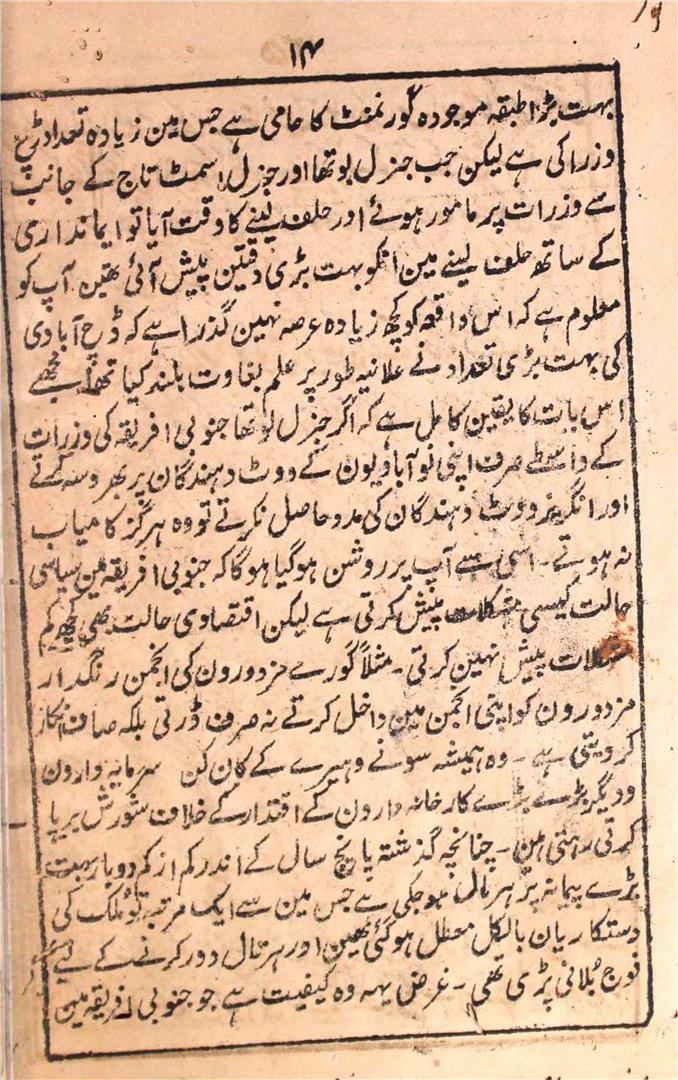 ۱۴
بہت بڑا طبقہ موجودہ گورنمنٹ کا حامی ہے جس مین زیادہ تعداد ڈچ
وزرا کی ہے لیکن جب جنرل بوتھا اور جنرل اسمٹ تاج کے جانب
سے وزرات پر مامور ہوئے اور حلف لینے کا وقت آیا تو ایمانداری
کے ساتھ حلف لینے مین انکو بہت بڑی دقتین پیش آئی تھین۔ آپ کو
معلوم ہے کہ اس واقعہ کو کچھ زیادہ عرصہ نہین گذرا ہے کہ ڈچ آبادی
کی بہت بڑی تعداد نے علانیہ طور پر علم بغاوت بلند کیا تھا۔ مجھے
اس بات کا یقین کامل ہے کہ اگر جنرل بوتھا جنوبی افریقہ کی وزرات
کے واسطے صرف اپنی نو آبادیون کے ووٹ دہندگان پر بھروسہ کرتے
اور انگریز ووٹ دہندگان کی مدد حاصل نکرتے تو وہ ہرگز کامیاب
نہ ہوتے۔ اسی سے آپ پر روشن ہوگیا ہوگا کہ جنوبی افریقہ مین سیاسی
حالت کیسی مشکلات پیش کرتی ہے لیکن اقتصادی حالت بھی کچھ کم
مشکلات پیش نہین کرتی۔ مثلاً گورے مزدورون کی انجمن رنگدار
مزدورون کو اپنی انجمن مین داخل کرتے نہ صرف ڈرتی بلکہ صاف انکار
کر دیتی ہے۔ وہ ہمیشہ سونے وہیرے کے کان کن سرمایہ دارون
ودیگر بڑے بڑے کارخانہ دارون کے اقتدار کے خلاف شورش برپا
کرتی رہتی ہین۔ چنانچہ گذشتہ پانچ سال کے اندر کم از کم دوبار بہت
بڑے پیمانہ پر ہرتال ہوچکی ہے جس مین سے ایک مرتبہ تو ملک کی
دستکاریان بالکل معطل ہوگئی تھین اور ہرتال دور کرنے کے لیے
فوج بُلانی پڑی تھی۔ غرض یہہ وہ کیفیت ہے جو جنوبی افریقہ مین